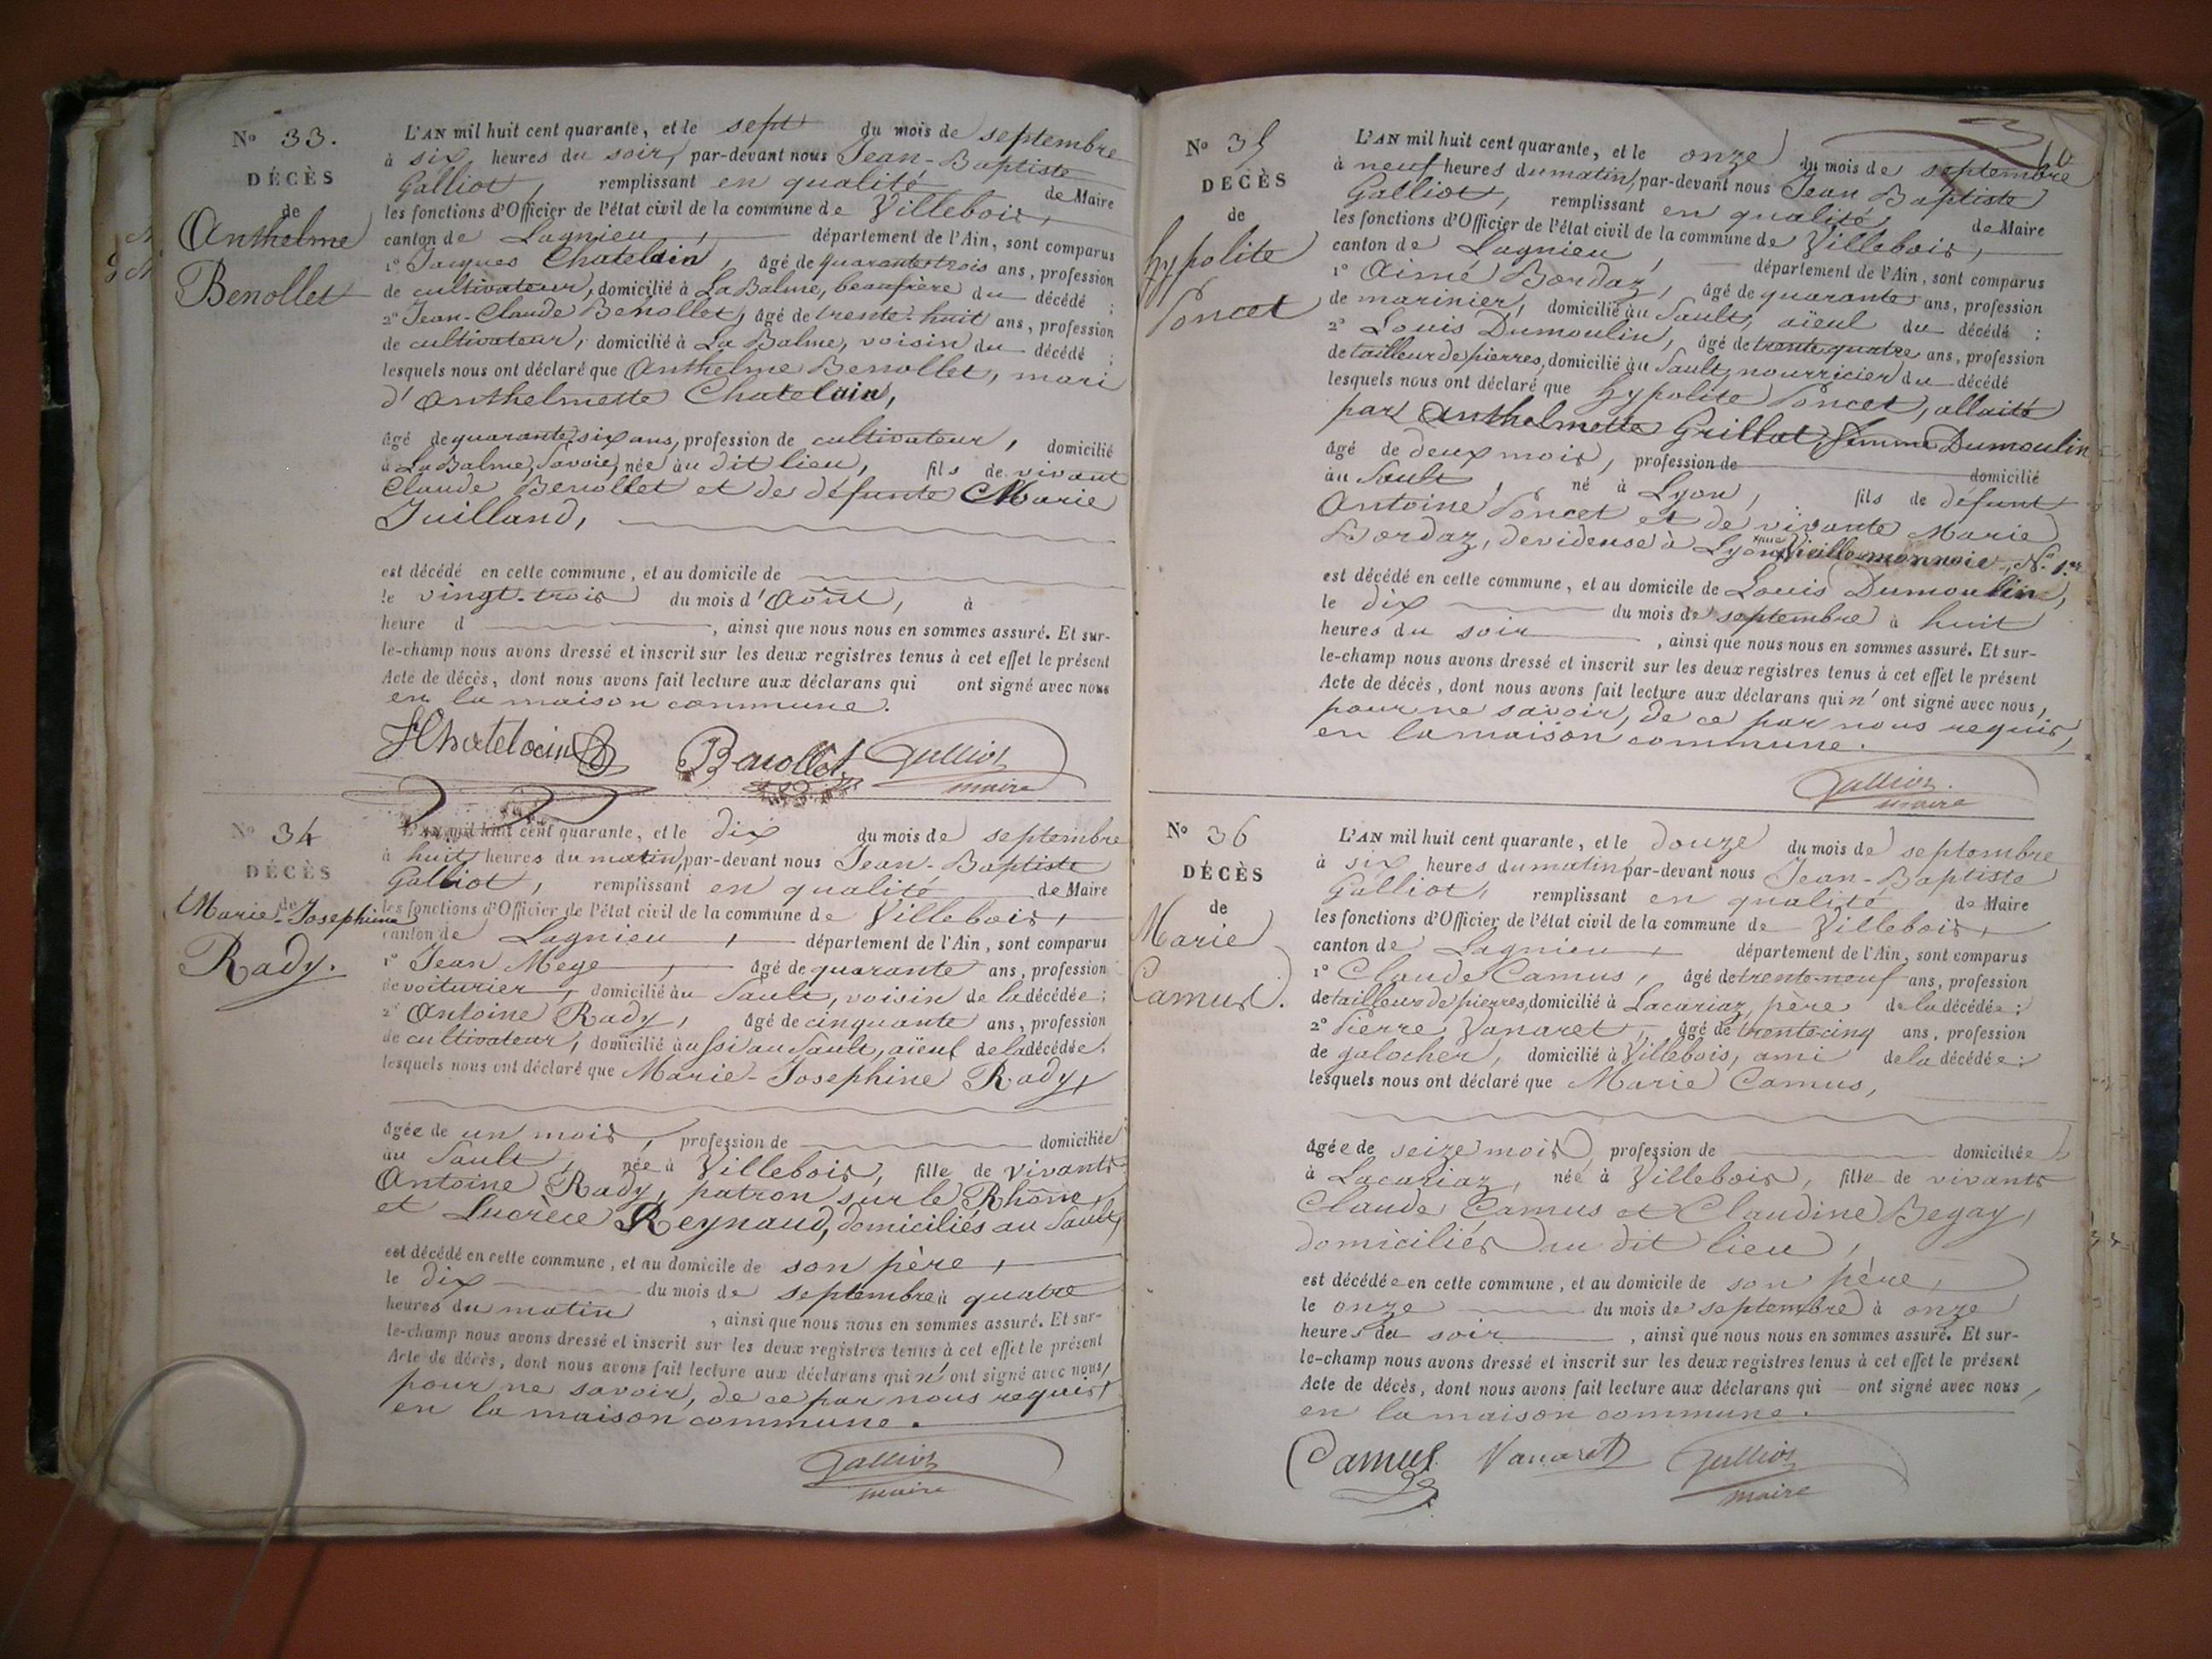 No 33.
DÉCÈS
de
Anthelme
Benollet
L'AN mil huit cent quarante, et le sept du mois de septembre
à six heures du soir, par-devant nous Jean-Baptiste
Galliot, remplissant en qualité de Maire
les fonctions d'Officier de l'état civil de la commune de Villebois,
canton de Lagnieu, département de l'Ain, sont comparus
1° Jacques Chatelain, âgé de quarante trois ans, profession
de cultivateur, domicilié à La Balme, beaufrere du décédé ;
2° Jean-Claude Benollet, âgé de trente-huit ans, profession
de cultivateur, domicilié à La Balme, voisin du décédé ;
lesquels nous ont déclaré que Anthelme Benollet, mari
d'Anthelmette Chatelain,
âgé de quarante six ans, profession de cultivateur, domicilié
à La Balme, Savoie, née au dit lieu, fils de vivant
Claude Benollet et de défunte Marie
Juilland,
est décédé en cette commune, et au domicile de
le vingt-trois du mois d'Août, à
heure d , ainsi que nous nous en sommes assuré. Et sur-
le-champ nous avons dressé et inscrit sur les deux registres tenus à cet effet le présent
Acte de décès, dont nous avons fait lecture aux déclarans qui ont signé avec nous
en la maison commune.
JChatelain Benollet Galliot
maire
No 34
DÉCÈS
de
Marie-Josephine
Rady.
L'AN mil huit cent quarante, et le dix du mois de septembre
à huit heures du matin, par-devant nous Jean-Baptiste
Galliot, remplissant en qualité de Maire
les fonctions d'Officier de l'état civil de la commune de Villebois,
canton de Lagnieu, département de l'Ain, sont comparus
1° Jean Mege, âgé de quarante ans, profession
de voiturier, domicilié au Sault, voisin de la décédée ;
2° Antoine Rady, âgé de cinquante ans, profession
de cultivateur, domicilié aussi au Sault, aïeul de la décédée.
lesquels nous ont déclaré que Marie-Josephine Rady,
âgée de un mois, profession de domiciliée
au Sault, née à Villebois, fille de vivants
Antoine Rady, patron sur le Rhône,
et Lucrèce Reynaud, domiciliés au Sault,
est décédé en cette commune, et au domicile de son père,
le dix du mois de septembre à quatre
heures du matin, ainsi que nous nous en sommes assuré. Et sur-
le-champ nous avons dressé et inscrit sur les deux registres tenus à cet effet le présent
Acte de décès, dont nous avons fait lecture aux déclarans qui n'ont signé avec nous,
pour ne savoir, de ce par nous requis,
en la maison commune.
Galliot
maire
No 35
DÉCÈS
de
hypolite
Poncet
L'AN mil huit cent quarante, et le onze du mois de septembre
à neuf heures du matin, par-devant nous Jean Baptiste
Galliot, remplissant en qualité de Maire
les fonctions d'Officier de l'état civil de la commune de Villebois,
canton de Lagnieu, département de l'Ain, sont comparus
1° Aimé Bordaz, âgé de quarante ans, profession
de marinier, domicilié au Sault, aïeul du décédé :
2° Louis Dumoulin, âgé de trente quatre ans, profession
de tailleur de pierres, domicilié au Sault, nourricier du décédé
lesquels nous ont déclaré que hypolite Poncet, allaité
par Anthelmette Grillat, femme Dumoulin
âgé de deux mois, profession de domicilié
au Sault, né à Lyon, fils de défunt
Antoine Poncet et de vivante Marie
Bordaz, devideuse à Lyon, rue Vieille monnoie, No 1er
est décédé en cette commune, et au domicile de Louis Dumoulin,
le dix du mois de septembre à huit
heures du soir, ainsi que nous nous en sommes assuré. Et sur-
le-champ nous avons dressé et inscrit sur les deux registres tenus à cet effet le présent
Acte de décès, dont nous avons fait lecture aux déclarans qui n'ont signé avec nous,
pour ne savoir, de ce par nous requis,
en la maison commune.
Galliot
maire
No 36
DÉCÈS
de
Marie
Camus.
L'AN mil huit cent quarante, et le douze du mois de septembre
à six heures du matin par-devant nous Jean-Baptiste
Galliot, remplissant en qualité de Maire
les fonctions d'Officier de l'état civil de la commune de Villebois,
canton de Lagnieu, département de l'Ain, sont comparus
1° Claude Camus, âgé de trente-neuf ans, profession
de tailleur de pierres, domicilié à Lacariaz, père de la décédée ;
2° Pierre Vanaret, âgé de trente-cinq ans, profession
de galocher, domicilié à Villebois, ami de la décédée :
lesquels nous ont déclaré que Marie Camus,
âgée de seize mois, profession de domiciliée
à Lacariaz, née à Villebois, fille de vivants
Claude Camus et Claudine Begay,
domiciliés au dit lieu,
est décédée en cette commune, et au domicile de son père,
le onze du mois de septembre à onze
heures du soir, ainsi que nous nous en sommes assuré. Et sur-
le-champ nous avons dressé et inscrit sur les deux registres tenus à cet effet le présent
Acte de décès, dont nous avons fait lecture aux déclarans qui ont signé avec nous,
en la maison commune.
Camus Vanaret Galliot
maire